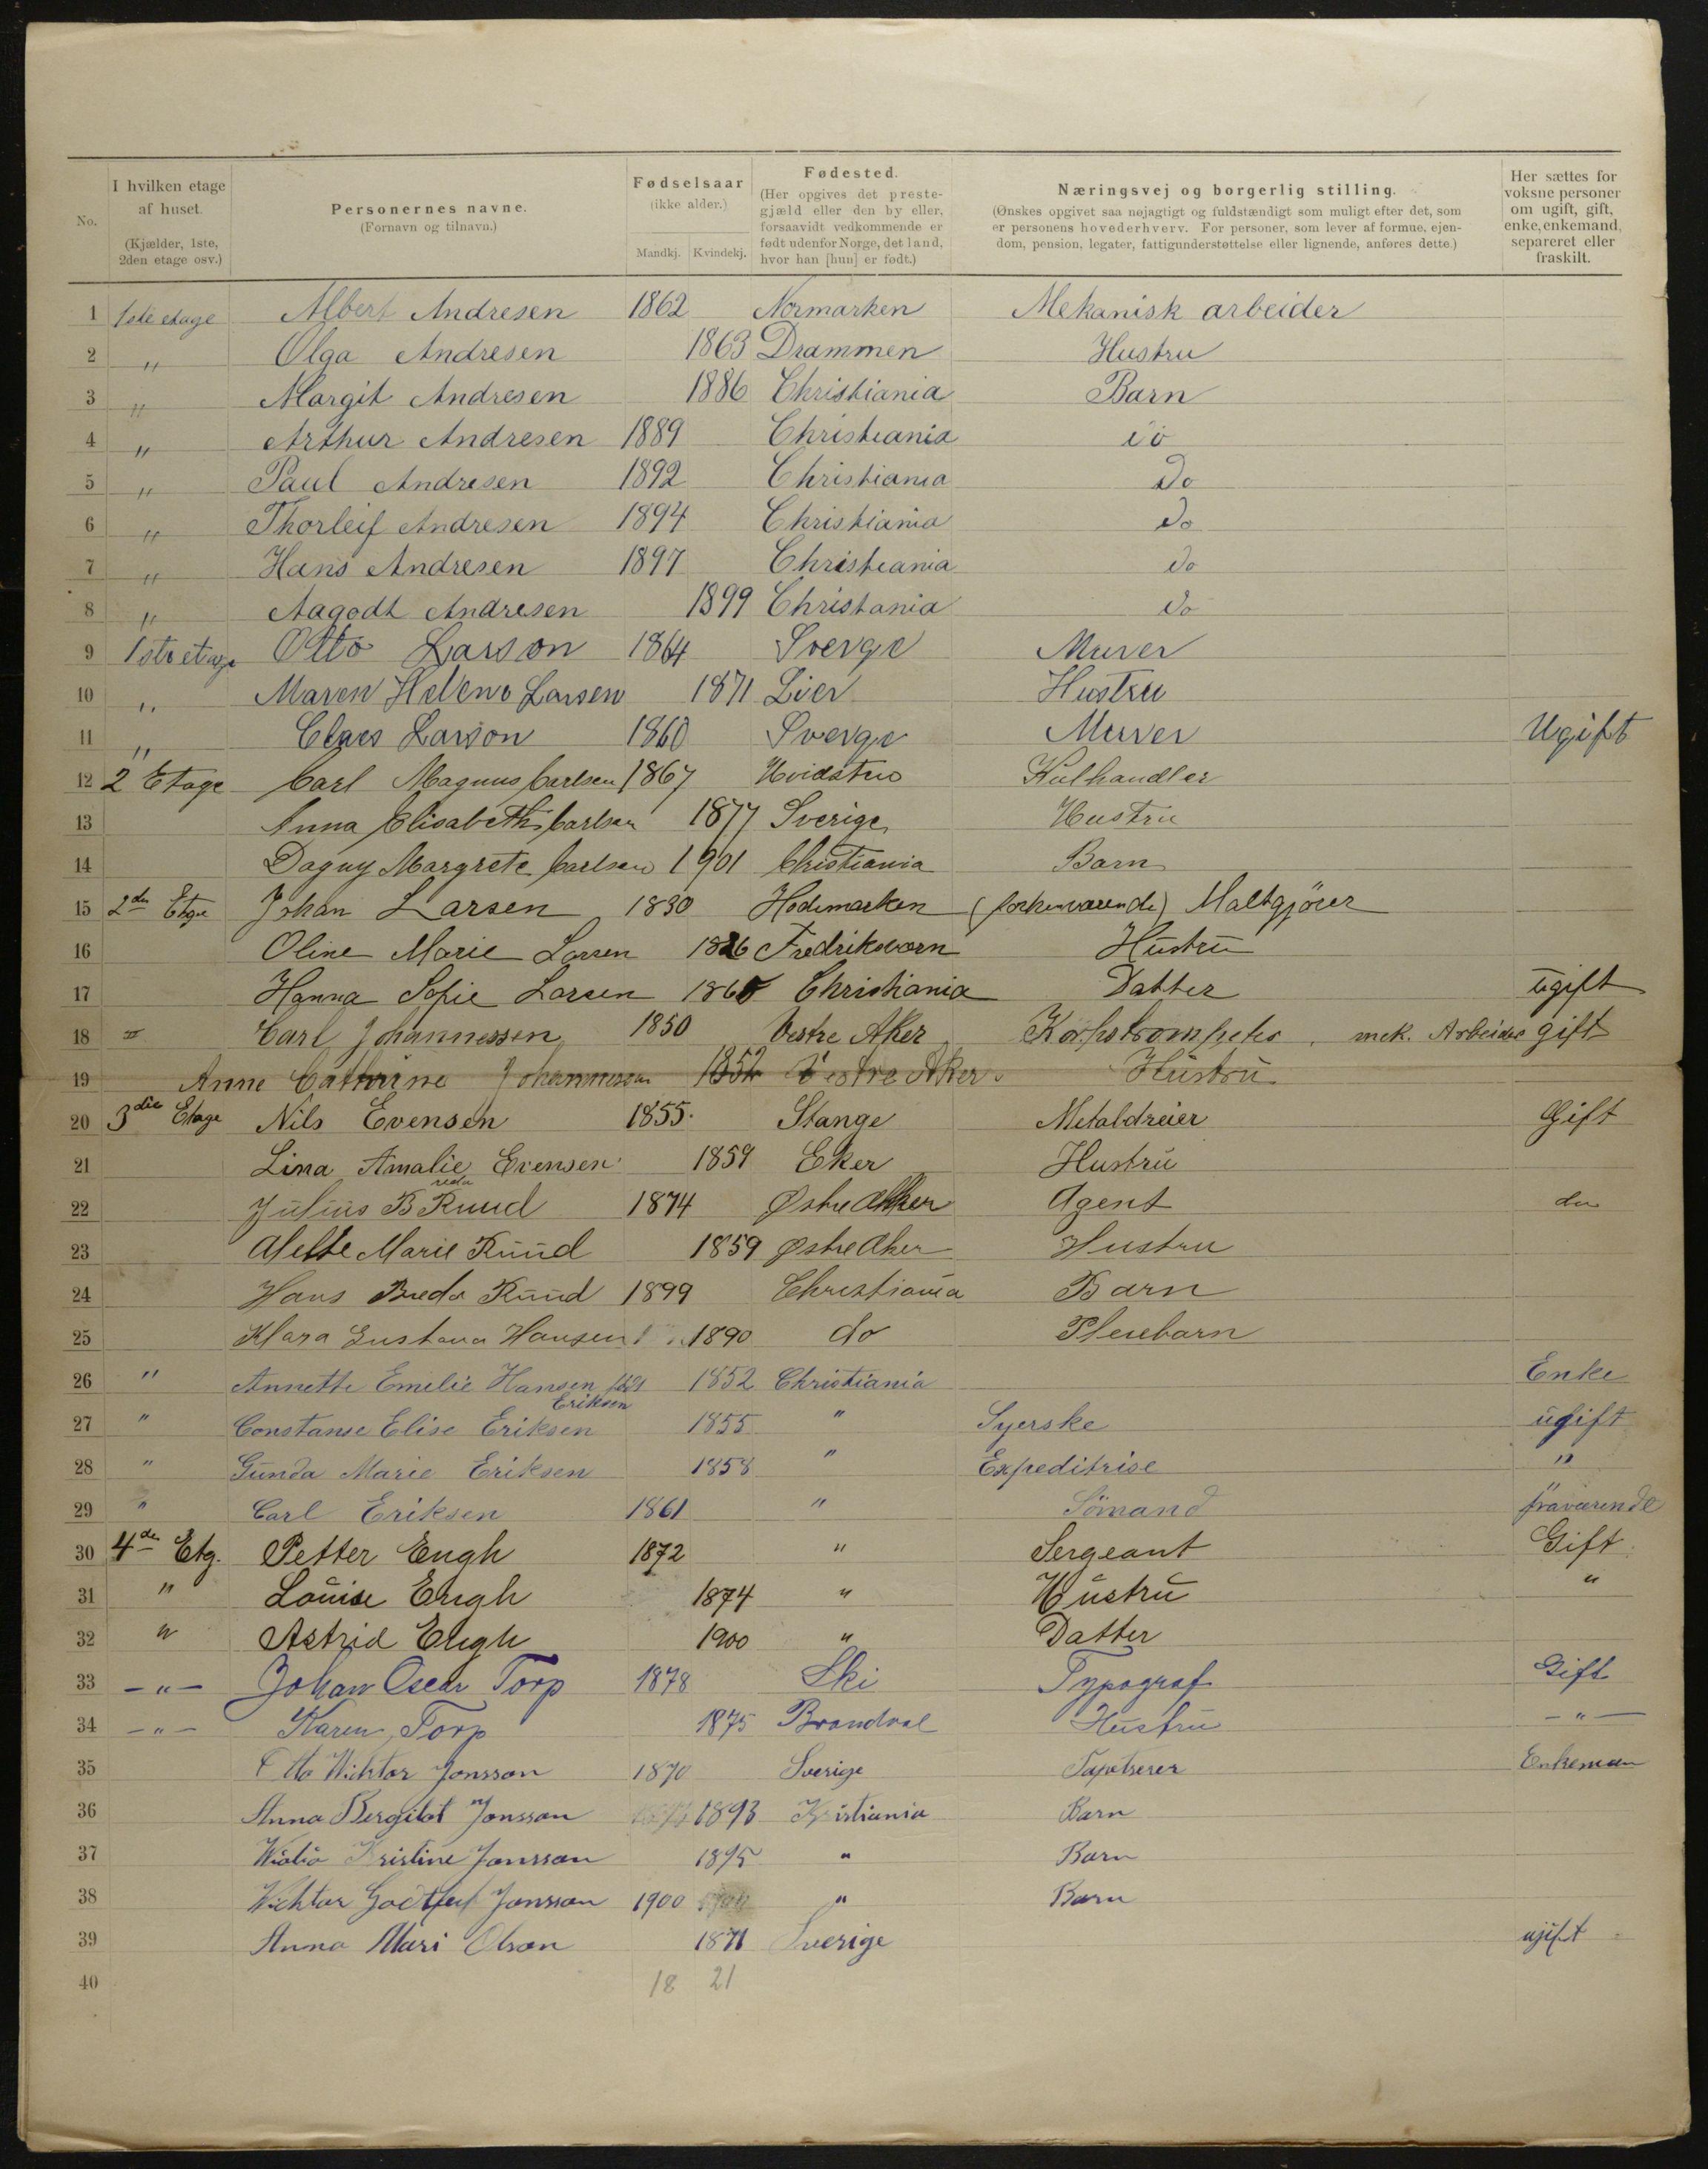 No.
I hvilken etage af huset. (Kjælder, 1ste, 2den etage osv.)
Personernes navne. (Fornavn og tilnavn.)
Fødselsaar (ikke alder.) Mandkj. Kvindekj.
Fødested. (Her opgives det prestegjæld eller den by eller, forsaavidt vedkommende er født udenfor Norge, det land, hvor han [hun] er født.)
Næringsvej og borgerlig stilling. (Ønskes opgivet saa nøjagtigt og fuldstændigt som muligt efter det, som er personens hovederhverv. For personer, som lever af formue, ejendom, pension, legater, fattigunderstøttelse eller lignende, anføres dette.)
Her sættes for voksne personer om ugift, gift, enke, enkemand, separeret eller fraskilt.
1 1ste etage Albert Andresen 1862 Normarken Mekanisk arbeider
2 " Olga Andresen 1863 Drammen Hustru
3 " Margit Andresen 1886 Christiania Barn
4 " Arthur Andresen 1889 Christiania do
5 " Paul Andresen 1892 Christiania do
6 " Thorleif Andresen 1894 Christiania do
7 " Hans Andresen 1897 Christiania do
8 " Aagodt Andresen 1899 Christania do
9 1ste etage Otto Larson 1864 Sverge Murer
10 " Maren Helene Larsen 1871 Lier Hustru
11 " Claes Larson 1860 Sverge Murer Ugift
12 2 Etage Carl Magnus Carlsen 1867 Kulhandler
13 Anna Elisabeth Carlsen 1877 Sverige Hustru
14 Dagny Margrete Carlsen 1901 Christiania Barn
15 2den Etge Johan Larsen 1830 Hedemarken (forhenværende) Maltgjører
16 Oline Marie Larsen 1826 Fredriksværn Hustru
17 Hanna Sofie Larsen 1865 Christiania Datter ugift
18 " Carl Johannessen 1850 Vestre Aker Korpstrompeter, mek. Arbeider gift
19 Anne Cathrine Johannessen 1852 Vestre Aker. Hustru
20 3die Etage Nils Evensen 1855. Stange Metaldreier Gift
21 Lina Amalie Evensen 1859 Eker Hustru
22 Julius Breda Ruud 1874 Østre Aker Agent do
23 Alette Marie Ruud 1859 Østre Aker Hustru
24 Hans Breda Ruud 1899 Christiania Barn
25 Klara Gustava Hansen 1890 do Pleiebarn
26 " Annette Emelie Hansen født Eriksen 1852 Christiania Enke
27 " Constanse Elise Eriksen 1855 " Syerske ugift
28 " Gunda Marie Eriksen 1858 " Expeditrise "
29 " Carl Eriksen 1861 " Sömand " fraværende
30 4de Etg. Petter Engh 1872 " Sergeant Gift
31 " Louise Engh 1874 " Hustru "
32 " Astrid Engh 1900 " Datter
33 -"- Johan Oscar Torp 1878 Ski Typograf Gift
34 -"- Karen Torp 1875 Brandval Hustru -"-
35 Otto Wichtor Jonsson 1870 Sverige Tapetserer Enkeman
36 Anna Bergitot Jonsson 1893 Kristiania Barn
37 Kristine Jonsson 1895 " Barn
38 Wichtor Godtfed Jonsson 1900 " Barn
39 Anna Mari Olson 1871 Sverige ugift
40 18 21